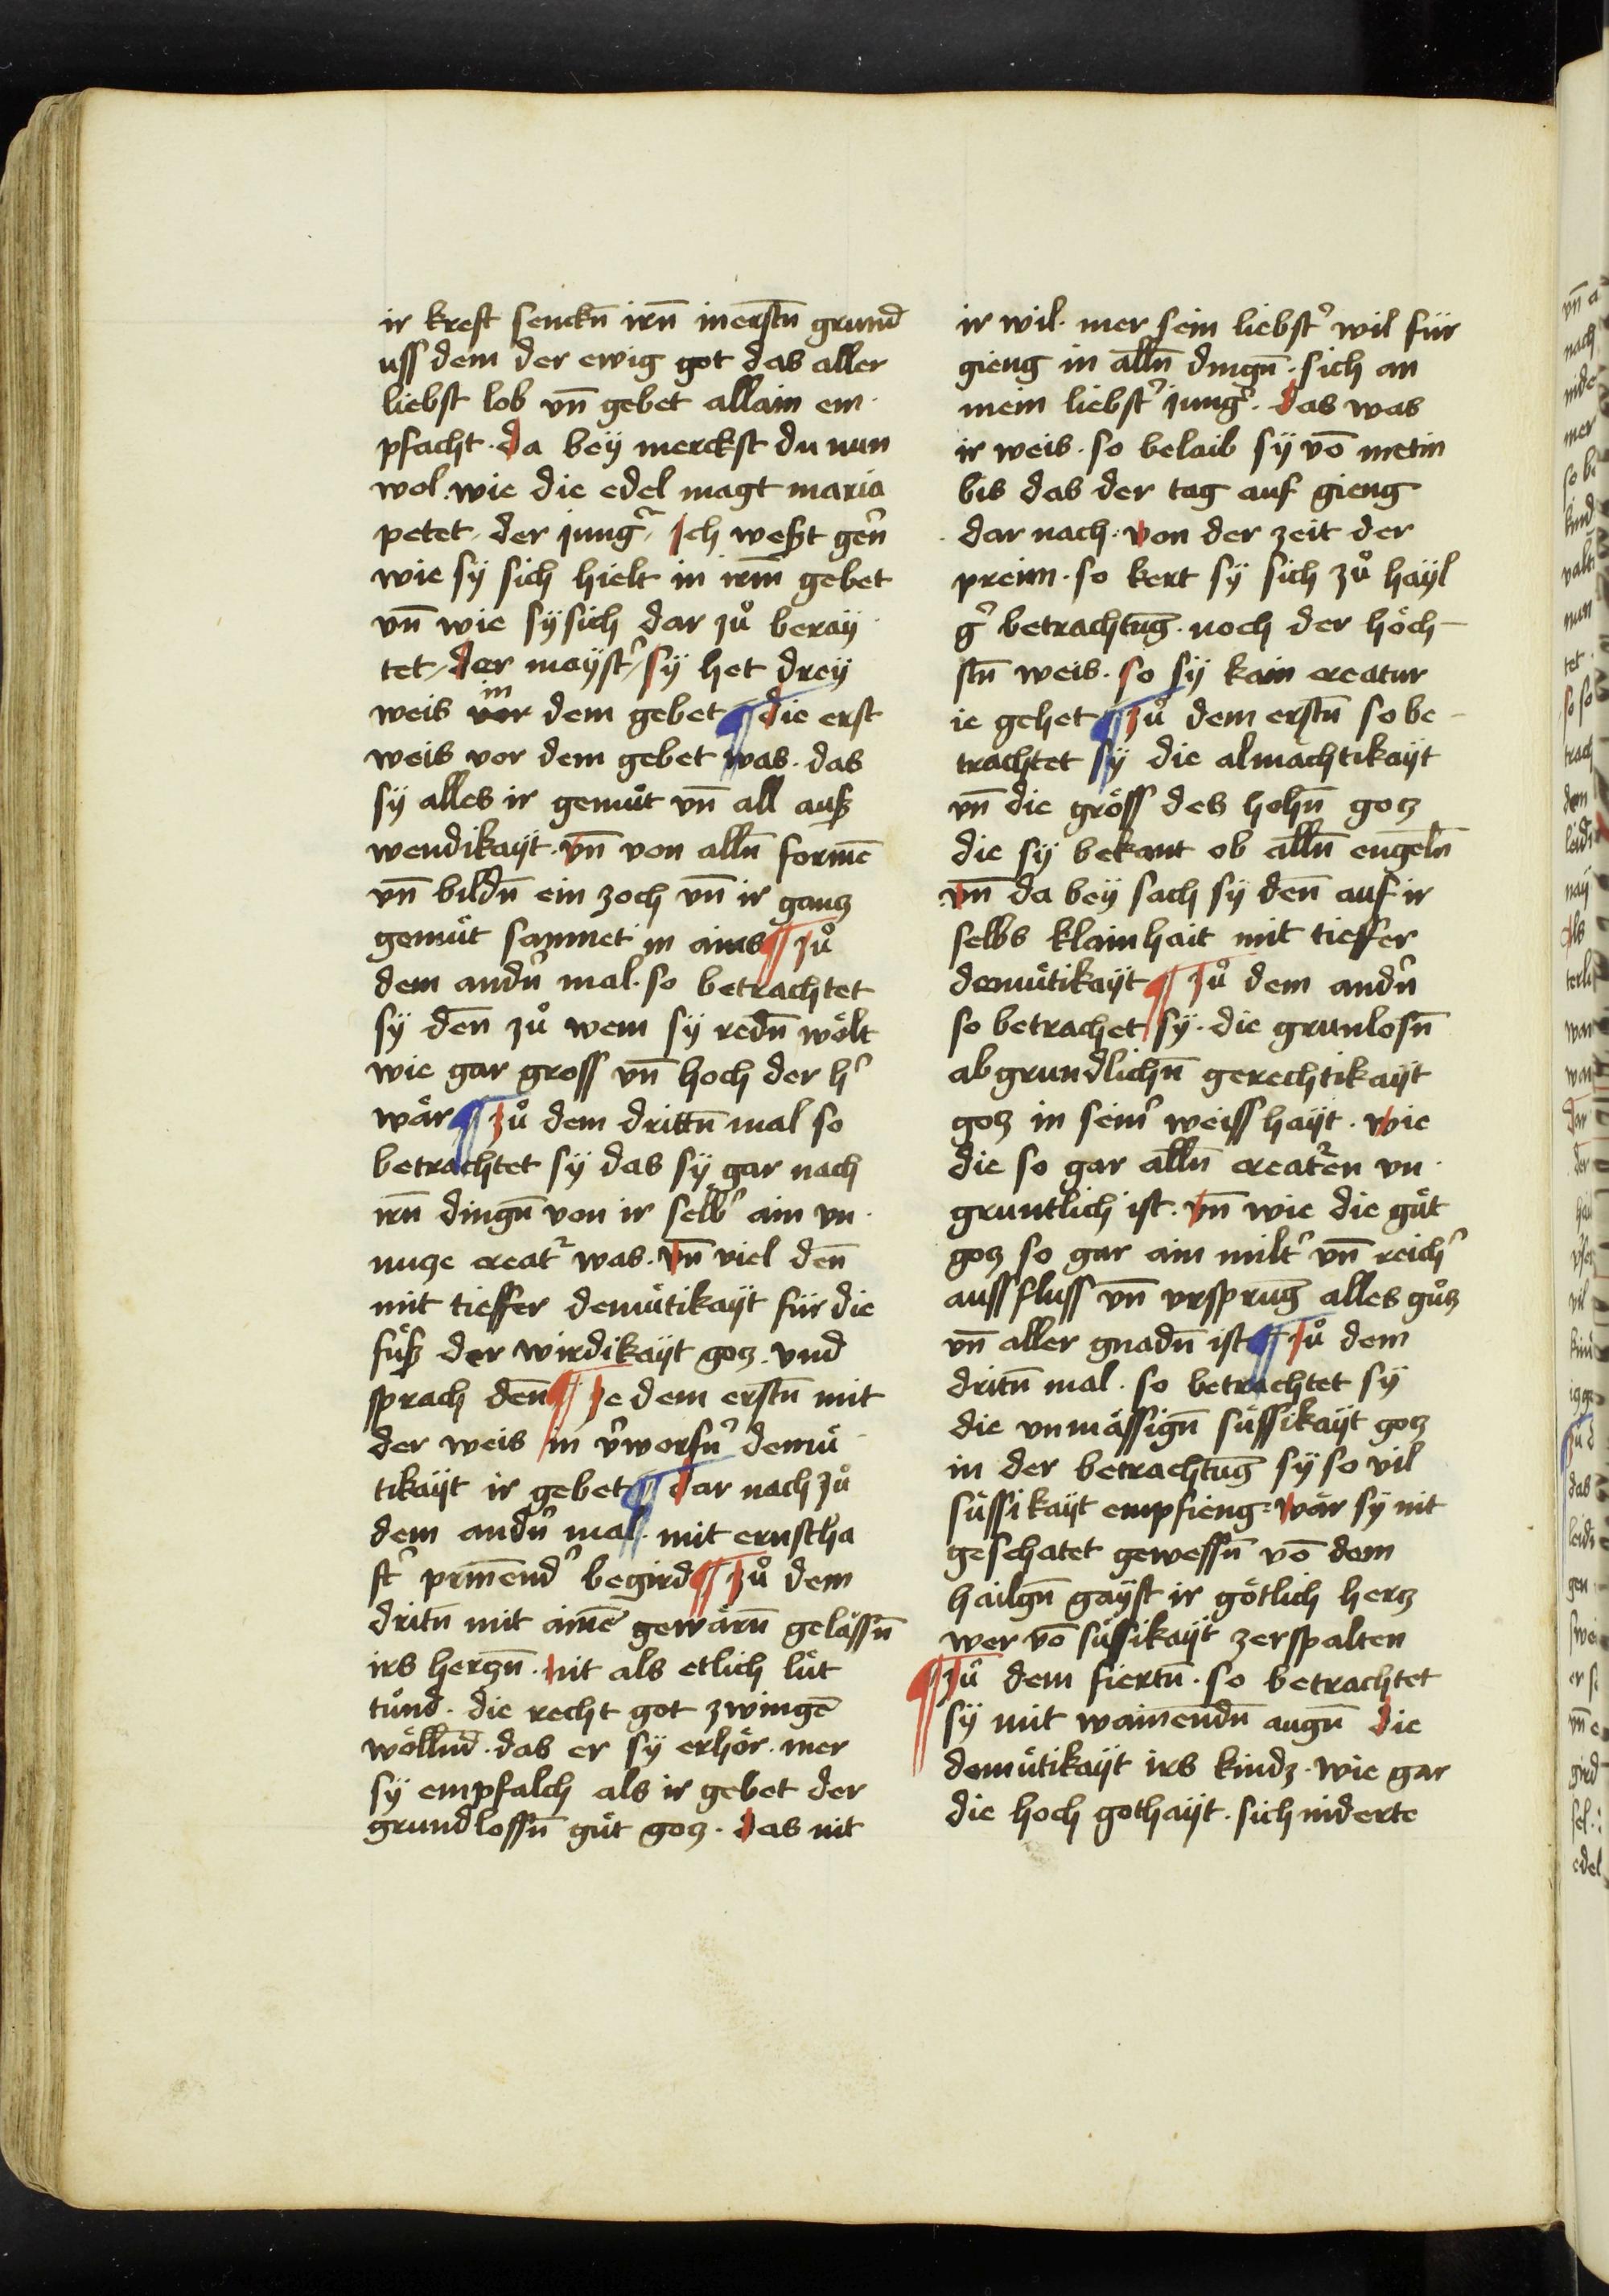 ir kreft senckn̄ irn̄ inerstn̄ grund
uss dem der ewig got das aller
liebst lob vn̄ gebet allain em
pfacht · da bey merckst du nun
wol · wie die edel magt maria
petet · der jungr̄ · Ich weßt gern̄
wie sÿ sich hielt in irm̄ gebet
vn̄ wie sÿ sich dar zů beraÿ
tet / der maÿst᾽ / sÿ het dreÿ
weis in dem gebet ¶ die erst
weis vor dem gebet was · das
sÿ alles ir gemuͤt vn̄ all auß
wendikaÿt · vn̄ von alln̄ forme᷑
vn̄ bildn̄ ein zoch vn̄ ir gancz
gemuͤt sammet in aines ¶ zů
dem andn̄ mal · so betrachtet
sÿ den̄ zů wem sÿ redn̄ woͤlt
wie gar gross vn̄ hoch der h᾽
waͤr ¶ zů dem drittn̄ mal so
betrachtet sÿ das sÿ gar nach
irn̄ dingn̄ von ir selb᾽ ain vn
nucze creat᾽ was · vn̄ viel den̄
mit tieffer demuͤtikaÿt für die
fuͤß der wirdikaÿt gocz · vnd
sprach den̄ ¶ ze dem erstn̄ mit
der weis in v᾽worfn᾽ demuͤ
tikaÿt ir gebet ¶ dar nach zů
dem andn̄ mal · mit ernstha
ft᾽ prin̄end᾽ begird ¶ zů dem
dritn̄ mit aime᷑ gewaͤrn̄ gelaͤssn̄
irs herczn̄ · nit als etlich luͤt
tůnd · die recht got zwinge᷑
woͤllnd̄ · das er sÿ erhoͤr · mer
sÿ empfalch als ir gebet der
grundlossn̄ guͤt gocz · das nit
ir wil · mer sein liebst᾽ wil für
gieng in alln̄ dingn̄ · sich an
mein liebst᾽ jung᾽ · das was
ir weis · so belaib sÿ vō metin
bis das der tag auf gieng
dar nach · von der zeit der
preim · so kert sÿ sich zů haÿl
g᾽ betrachtūg · noch der hoͤch
stn̄ weis · so sÿ kain creatur
ie gehet ¶ zů dem erstn̄ so be
trachtet sÿ die almaͤchtikaÿt
vn̄ die groͤss des hohn̄ gocz
die sÿ bekant ob alln̄ engeln̄
vn̄ da beÿ sach sÿ den̄ auf ir
selbs klainhait mit tieffer
demuͤtikaÿt ¶ zů dem andn̄
so betrachet sÿ · die grunlosn̄
abgrundlichn̄ gerechtikaÿt
gocz in sein᾽ weisshaÿt · wie
die so gar alln̄ creat᾽en vn
gruntlich ist · vn̄ wie die guͤt
gocz so gar ain milt᾽ vn̄ reich᾽
aussfluss vn̄ vrsprūg alles gůcz
vn̄ aller gnadn̄ ist ¶ zů dem
dritn̄ mal · so betrachtet sÿ
die vnmaͤssign̄ suͤssikaÿt gocz
in der betrachtūg sÿ so vil
suͤssikaÿt empfieng · waͤr sÿ nit
geschatet gewessn̄ vō dem
hailgn̄ gaÿst ir goͤtlich hercz
wer vō suͤssikaÿt zerspalten
¶ zů dem fiertn̄ · so betrachtet
sÿ mit wainendn̄ augn̄ die
demuͤtikaÿt irs kindz · wie gar
die hoch gothaÿt · sich niderte